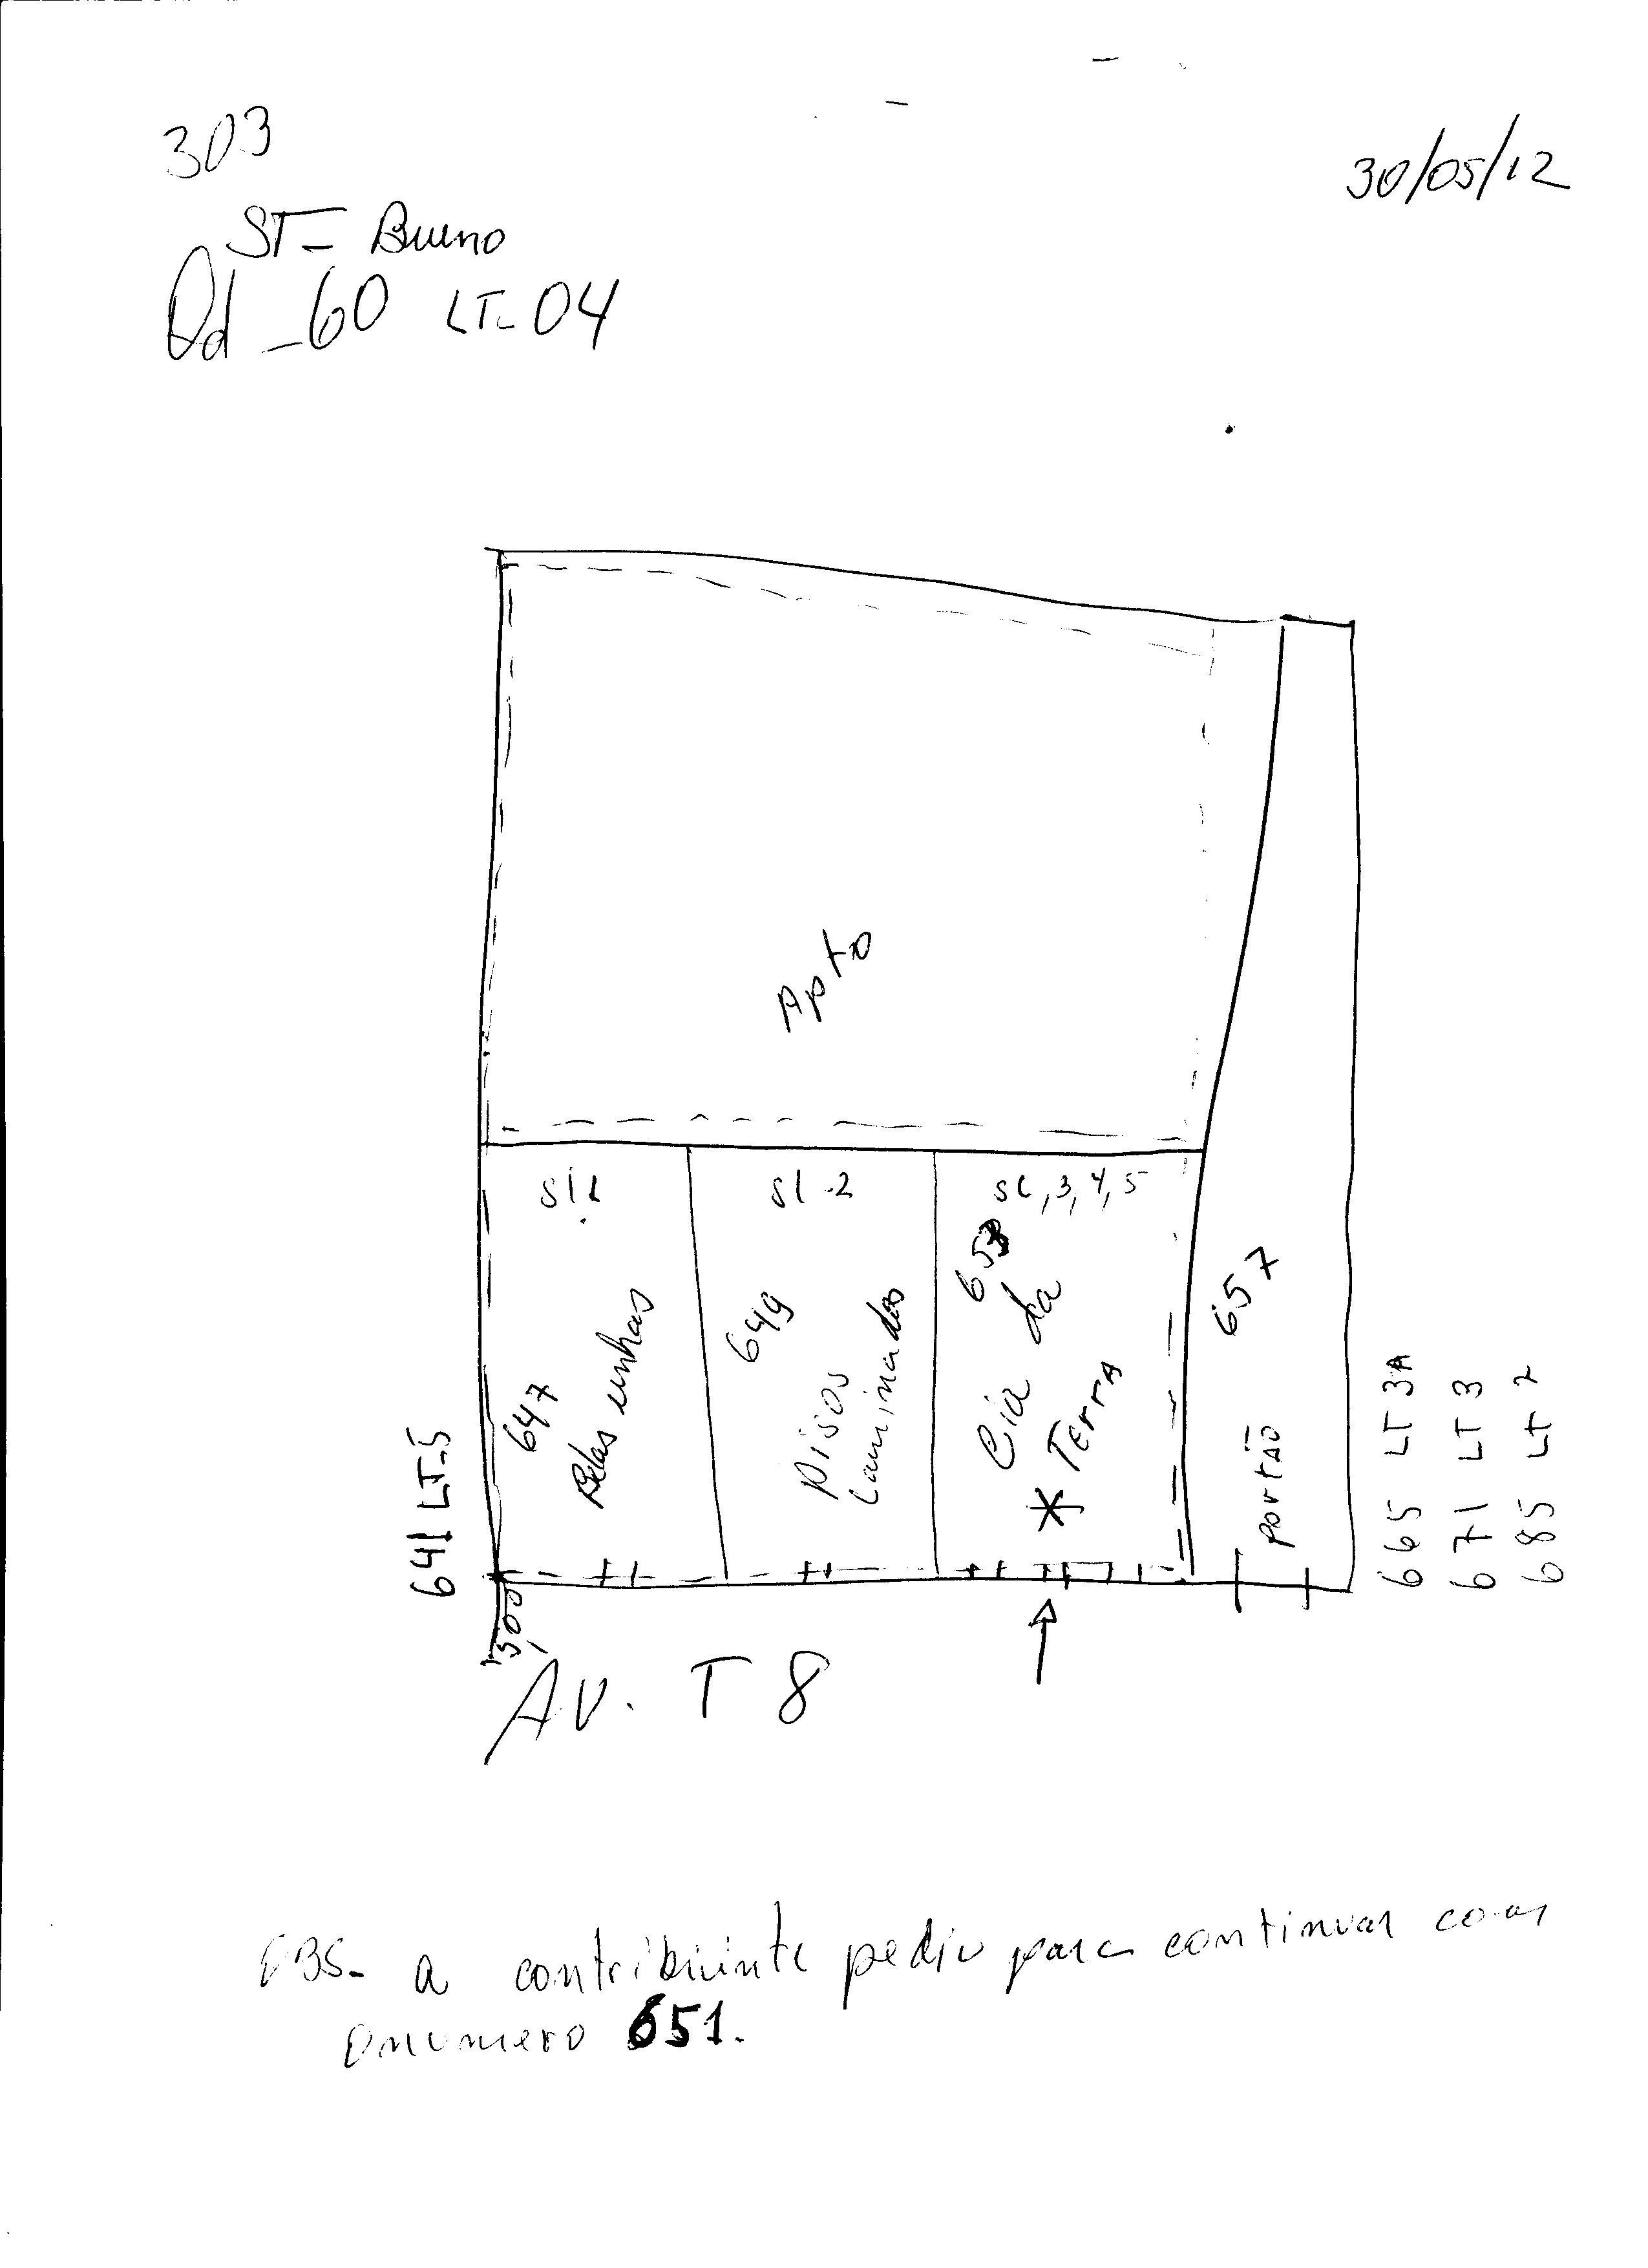 303
30/05/12
ST- Bueno
Qd -60 LT- 04
Apto
sl1
sl-2
sl,3,4,5
647
Belas unhas
649
Pisos
Laminados
653
Cia da
* Terra
657
portão
641 LT-5
665 LT 3A
671 LT 3
685 LT 2
Av. T 8
OBS- a contribuinte pediu para continuar com
o numero 651.